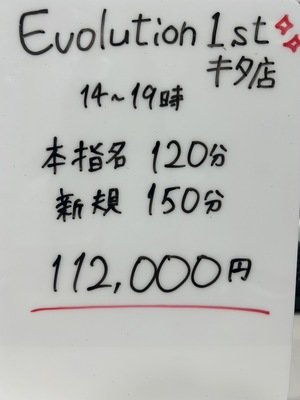 Evolution 1st
キタ店
14~19時
本指名 120分
新規 150分
112,000円